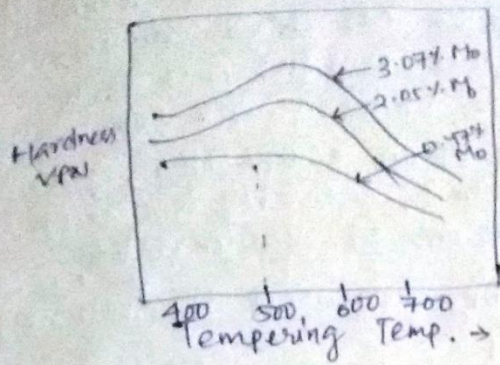 3.07% Mo
2.05% Mo
0.47% Mo
Hardness
VPN
400 500 600 700
Tempering Temp. →